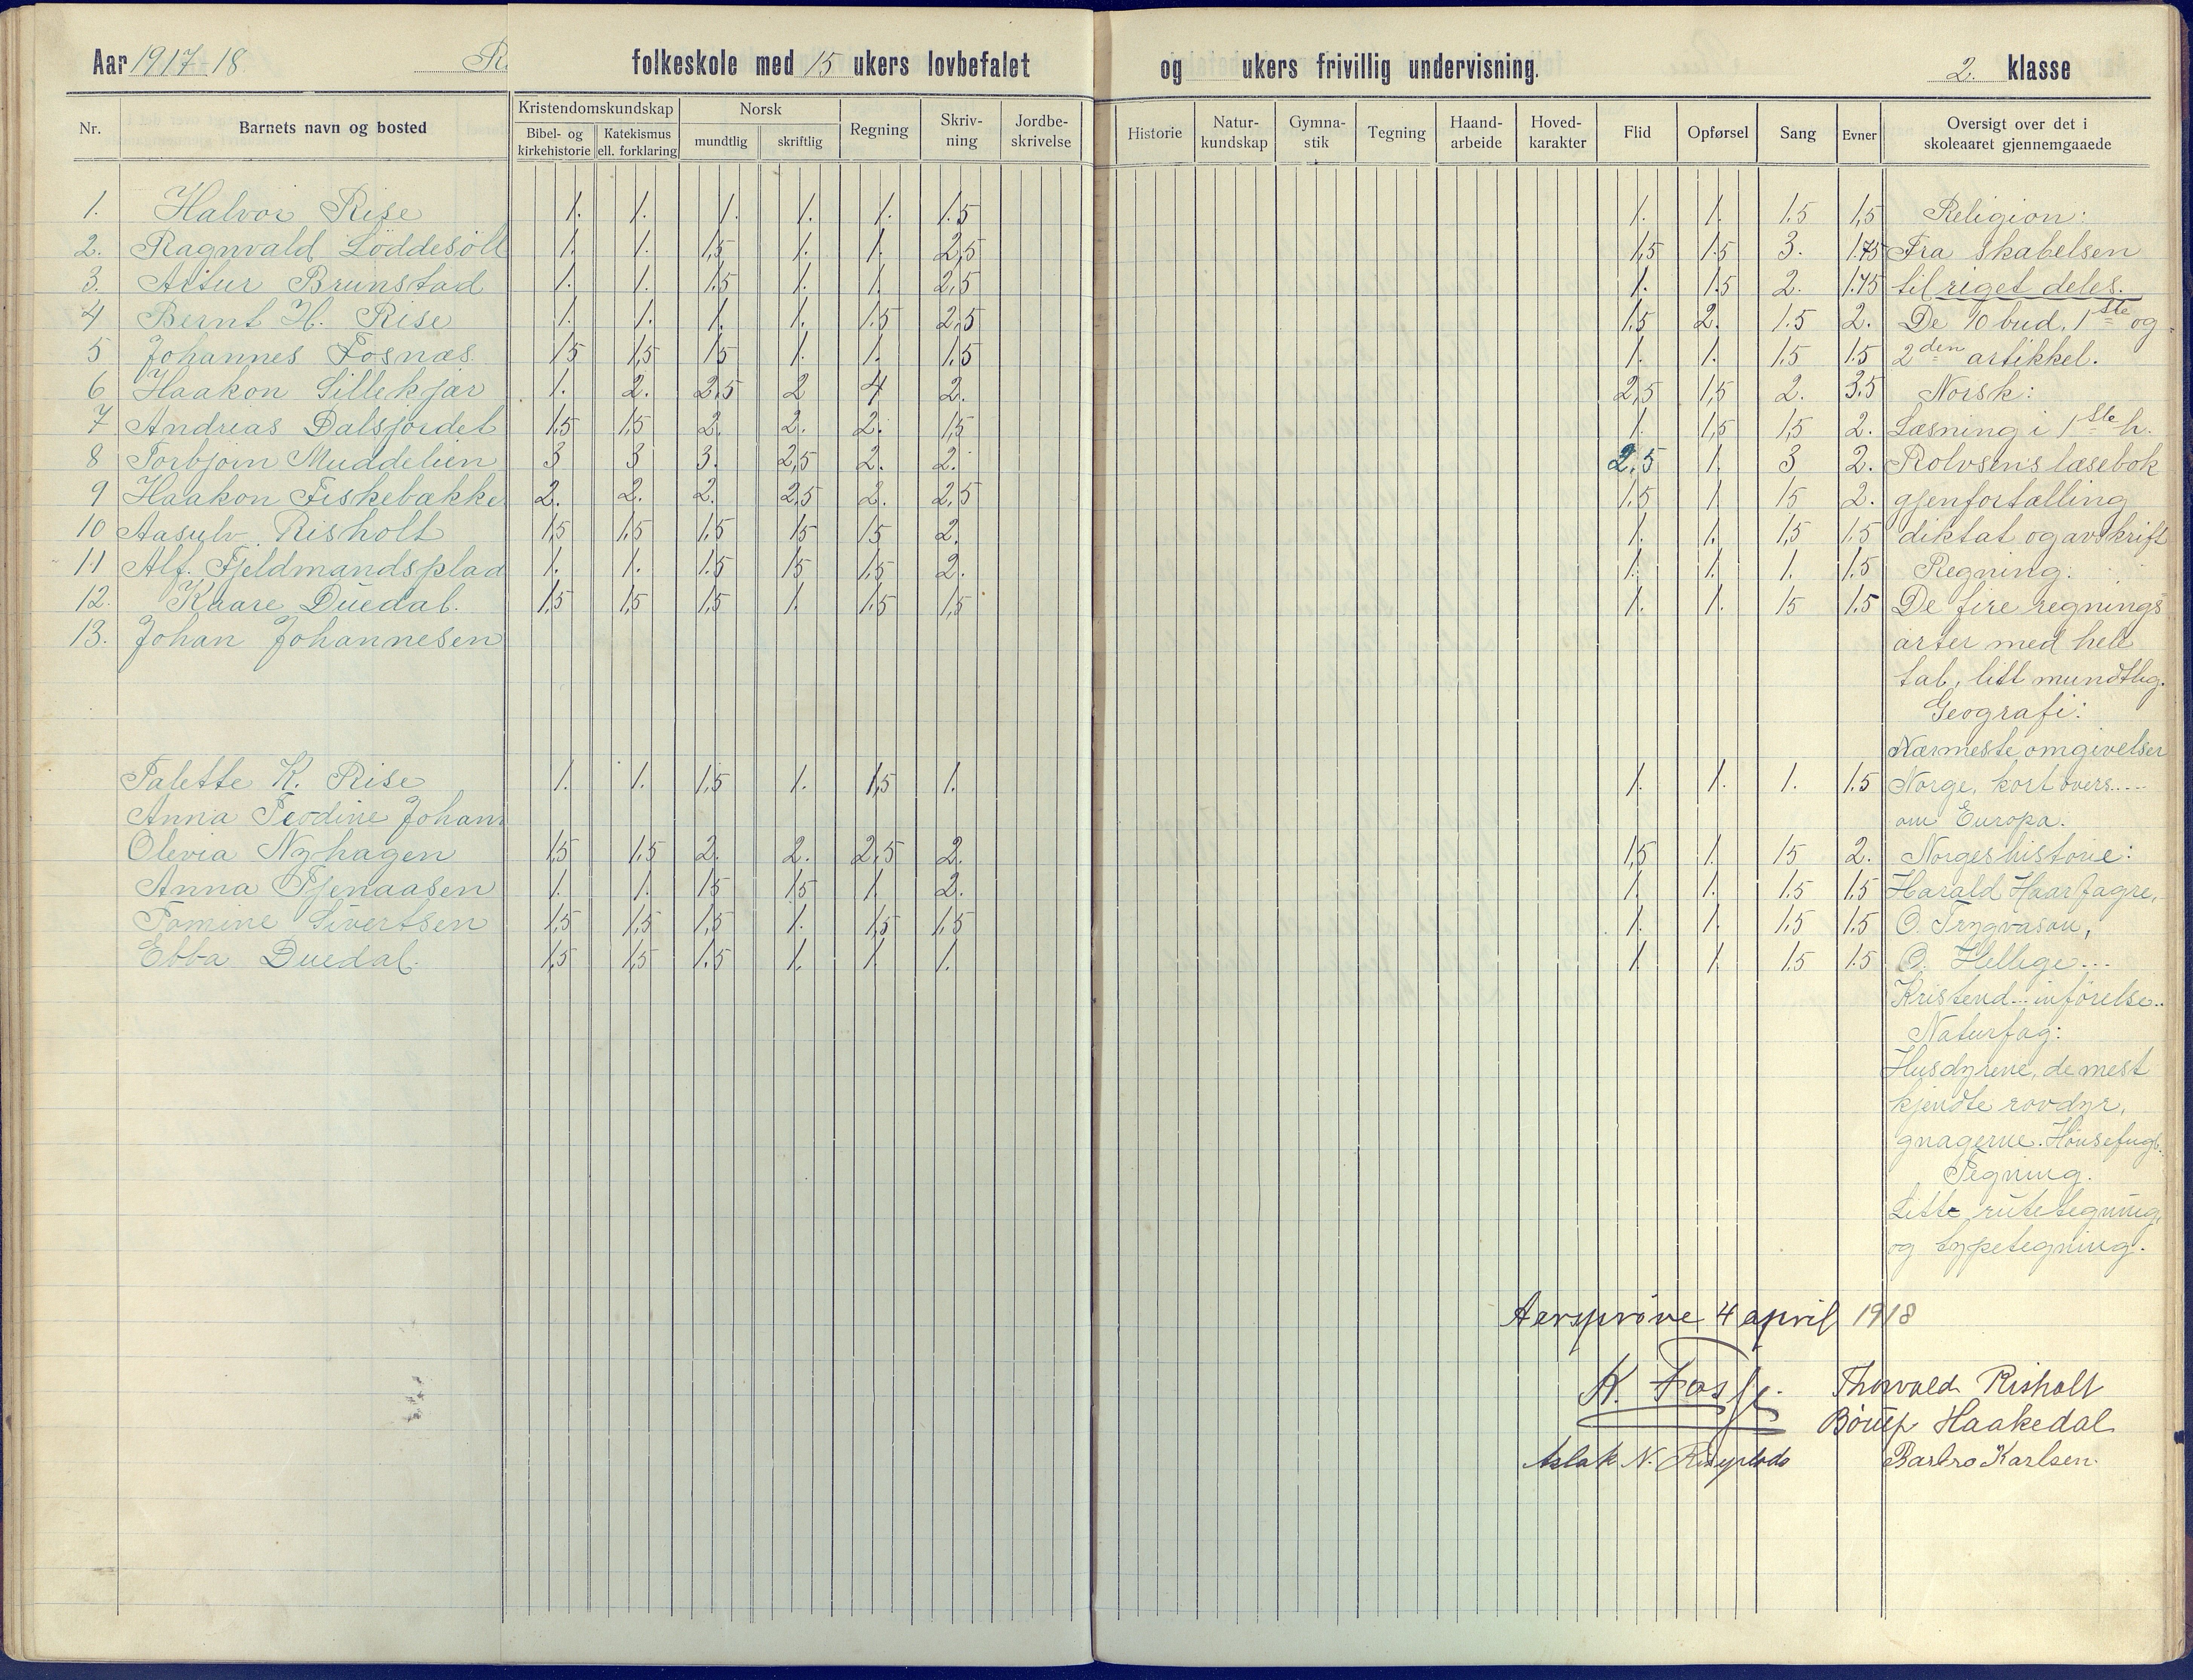 Aar 1917-18 folkeskole med 15 ukers lovbefalet og ukers frivillig undervisning. 2. klasse
Nr. Barnets navn og bosted Kristendomskundskap Norsk Regning Skriv- Jordbe- Historie Natur- Gymna- Tegning Haand- Hoved- Flid Opførsel Sang Evner Oversigt over det i
Bibel- og Katekismus mundtlig skriftlig ning skrivelse kundskap stik arbeide karakter skoleaaret gjennemgaaede
kirkehistorie ell. forklaring
1. Halvor Rise 1. 1. 1. 1. 1. 1.5 1. 1. 1.5 1,5 Religion:
2. Ragnvald Løddesøll 1. 1. 1,5 1. 1. 2,5 1,5 1.5 3. 1.75 Fra skabelsen
3. Artur Brunstad 1. 1. 1.5 1. 1. 2.5 1. 1.5 2. 1.75 til riget deles.
4 Bernt H. Rise 1. 1. 1. 1. 1.5 2,5 1.5 2. 1.5 2. De 10 bud. 1ste og
5 Johannes Fosnæs 15 1,5 15 1. 1. 1.5 1. 1. 1.5 1.5 2den artikkel.
6 Haakon Lillekjær 1. 2. 2,5 2 4 2. 2,5 1,5 2. 3.5 Norsk:
7 Andrias Dalsfordet 1.5 15 2. 2. 2. 1,5 1. 1,5 1,5 2. Læsning i 1ste h.
8 Torbjørn Muddelien 3 3 3. 2,5 2. 2. 2.5 1. 3 2. Rolvsens læsebok
9 Haakon Fiskebække 2. 2. 2. 2,5 2. 2,5 1.5 1 15 2. gjenfortælling
10 Aasulv Risholt 1,5 1.5 1.5 15 15 2. 1. 1. 1,5 1.5 diktat og avskrift
11 Alf. Fjeldmandsplad 1. 1. 1.5 15 1.5 2. 1. 1. 1. 1.5 Regning.
12. Kaare Duedal. 1,5 1,5 1,5 1. 1.5 1,5 1. 1. 15 1.5 De fire regnings
13. Johan Johannesen arter med hele
tal, litt mundtlig.
Geografi:
Nærmeste omgivelser
Talette K. Rise 1. 1. 1,5 1. 1,5 1. 1. 1. 1. 1.5 Norge, kort overs....
Anna Teodine Johann om Europa.
Olevia Nyhagen 1,5 1.5 2. 2. 2,5 2. 1,5 1. 15 2. Norgeshistorie:
Anna Tjenaasen 1. 1. 15 15 1. 2. 1. 1. 1.5 1.5 Harald Haarfagre,
Tomine Sivertsen 1,5 1,5 1,5 1. 1,5 1.5 1. 1. 1.5 1.5 O. Trygvason,
Ebba Duedal. 1,5 1,5 1.5 1. 1. 1. 1. 1. 1.5 1.5 O. Hellige...
Kristend... inførelse..
Naturfag:
Husdyrene, de mest
kjendte rovdyr,
gnagerne. Hønsefugl.
Tegning.
Litt rutetegning,
og typetegning.
Aarsprøve 4 april 1918
K. Fosse. Thorvald Risholt
Haakedal
Aslak N. Barbro Karlsen.